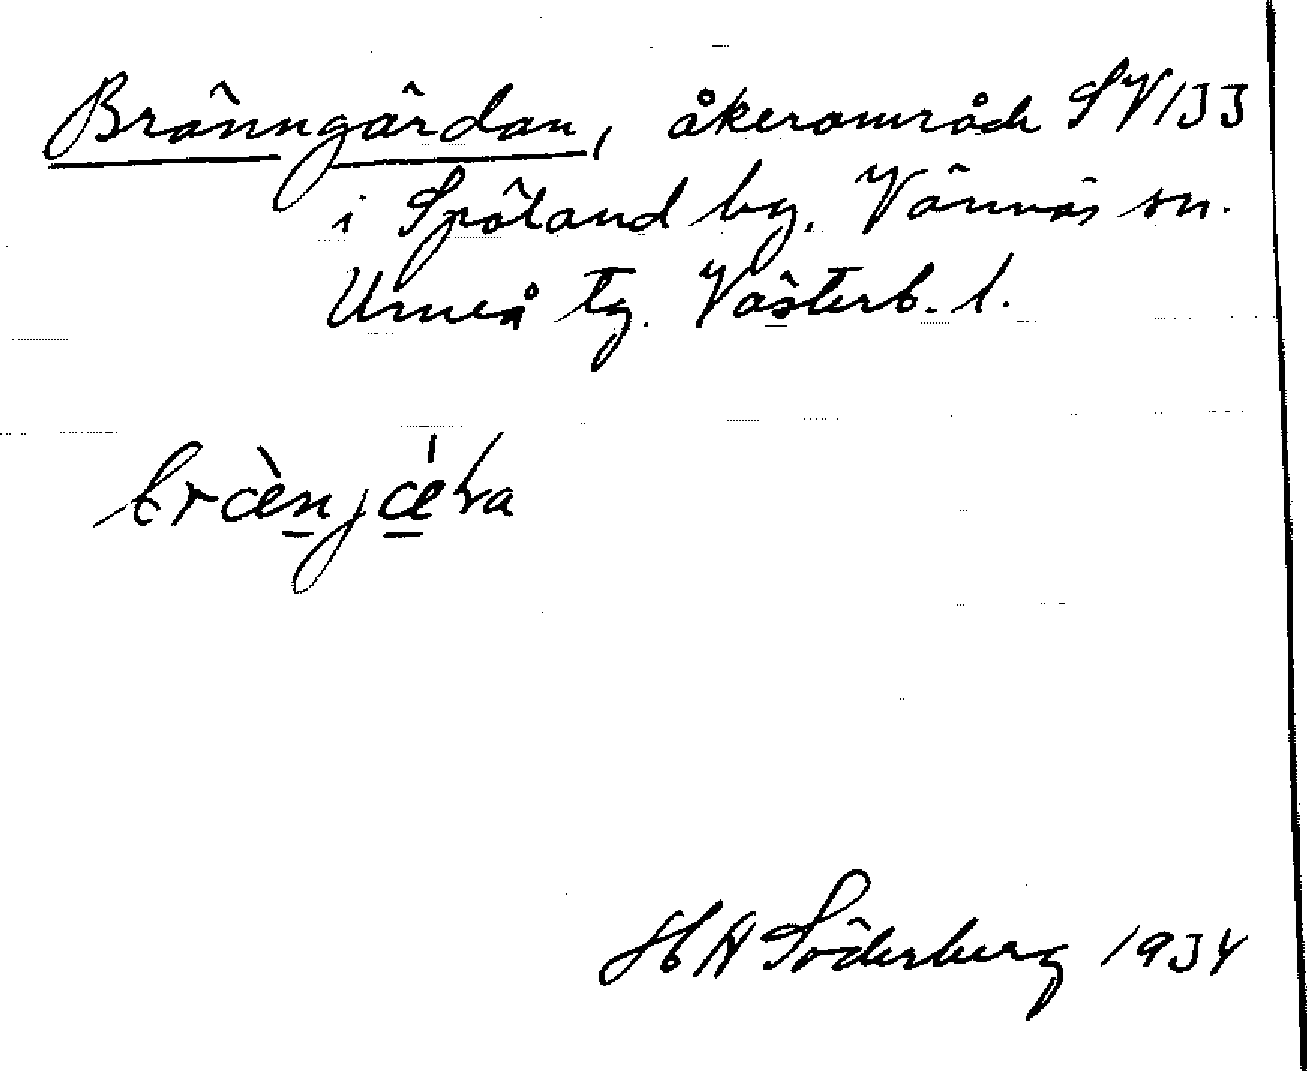 Bränngärdan, åkerområde SV133
i Spöland by. Vännäs sn.
Umeå tg. Västerb. l.
HA Söderberg 1934